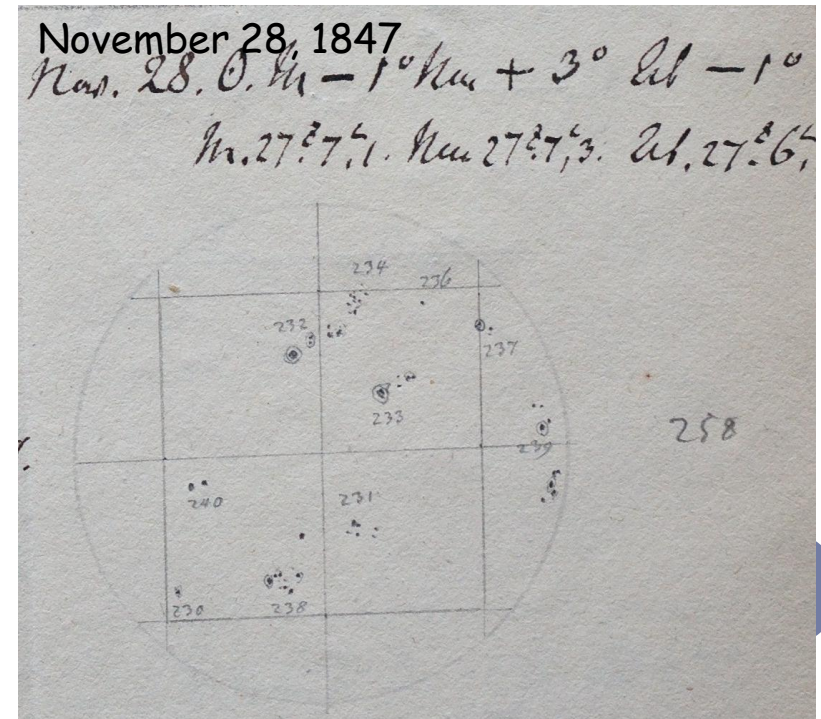 November 28, 1847
Nov. 28. O. M. – 1° Nm + 3° Ab – 1°
M. 27.7,1. Nm 27.7,3. Ab. 27.6,
234
236
232
237
233
239
258
240
231
230
238